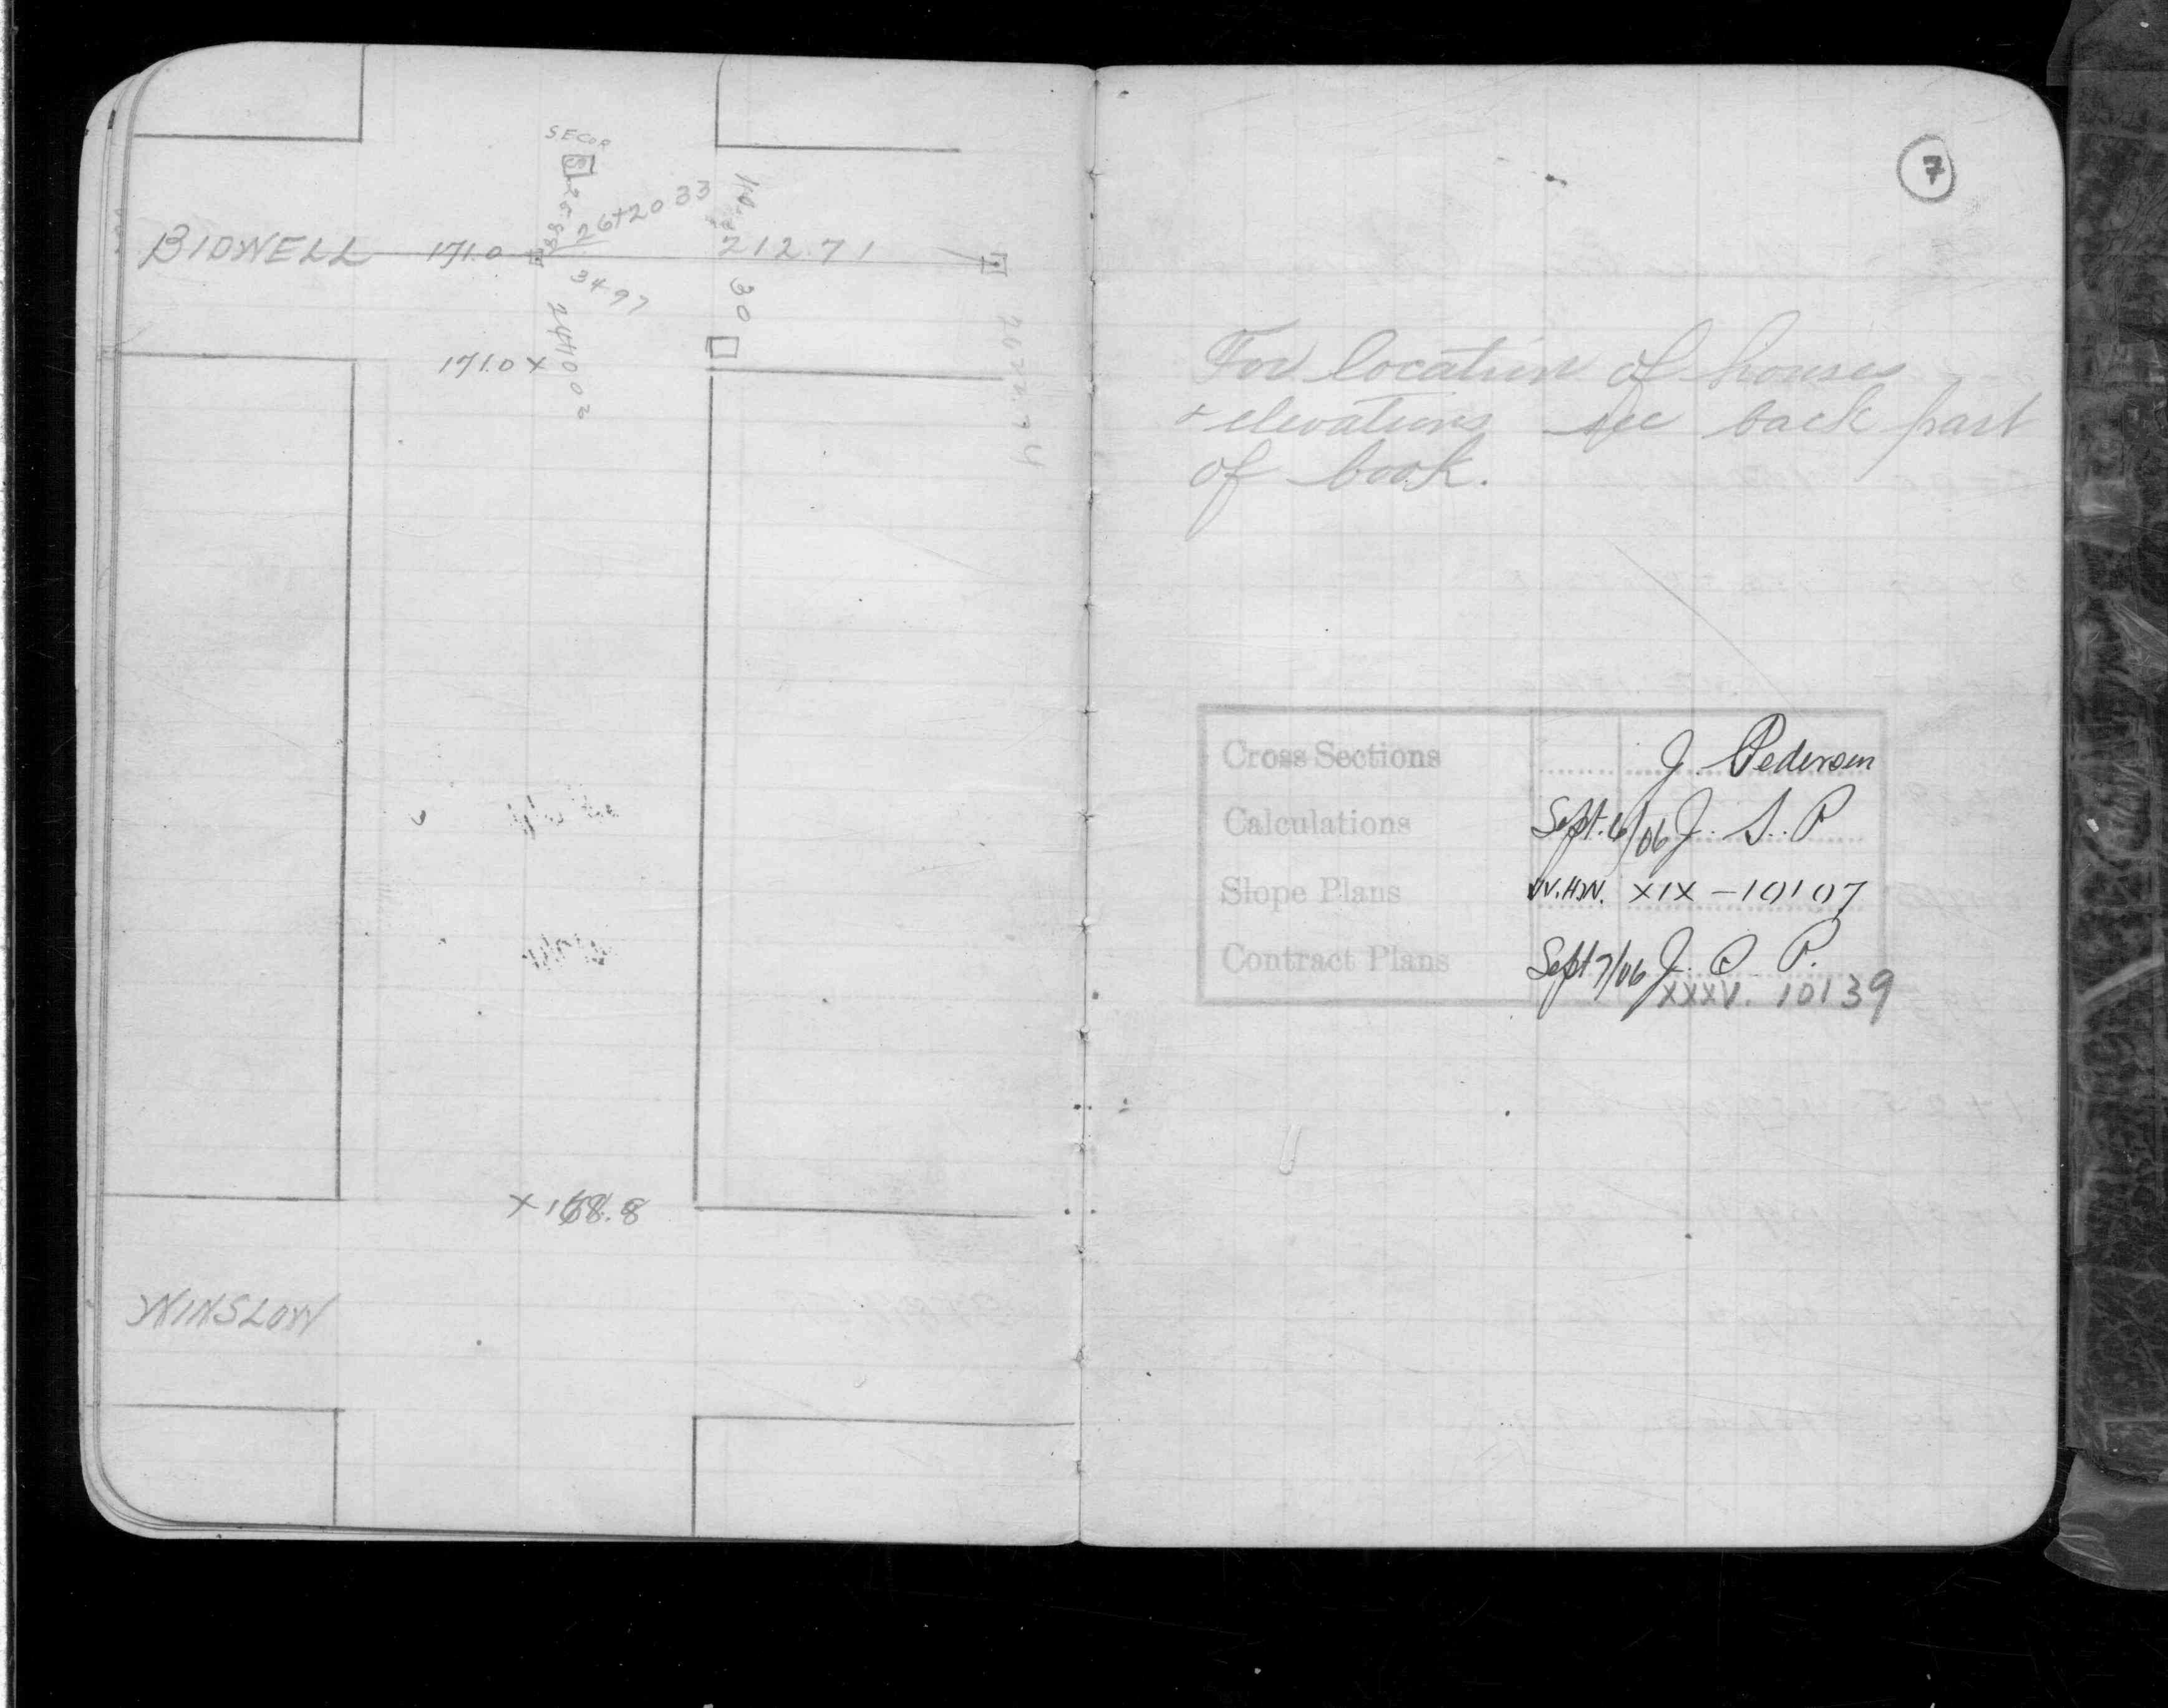 SECOR
S
25.88
26+20 33
10.
BIDWELL 171.0
212.71
34 97
30
171.0 x
x 168.8
WINSLOW
7
For location of houses
+ elevations see back part
of book.
Cross Sections J. Pedersen
Calculations Sept. 6/06 J. S. P
Slope Plans W.H.W. XIX - 10107
Contract Plans Sept 7/06 J. S. P.
XXXV. 10139